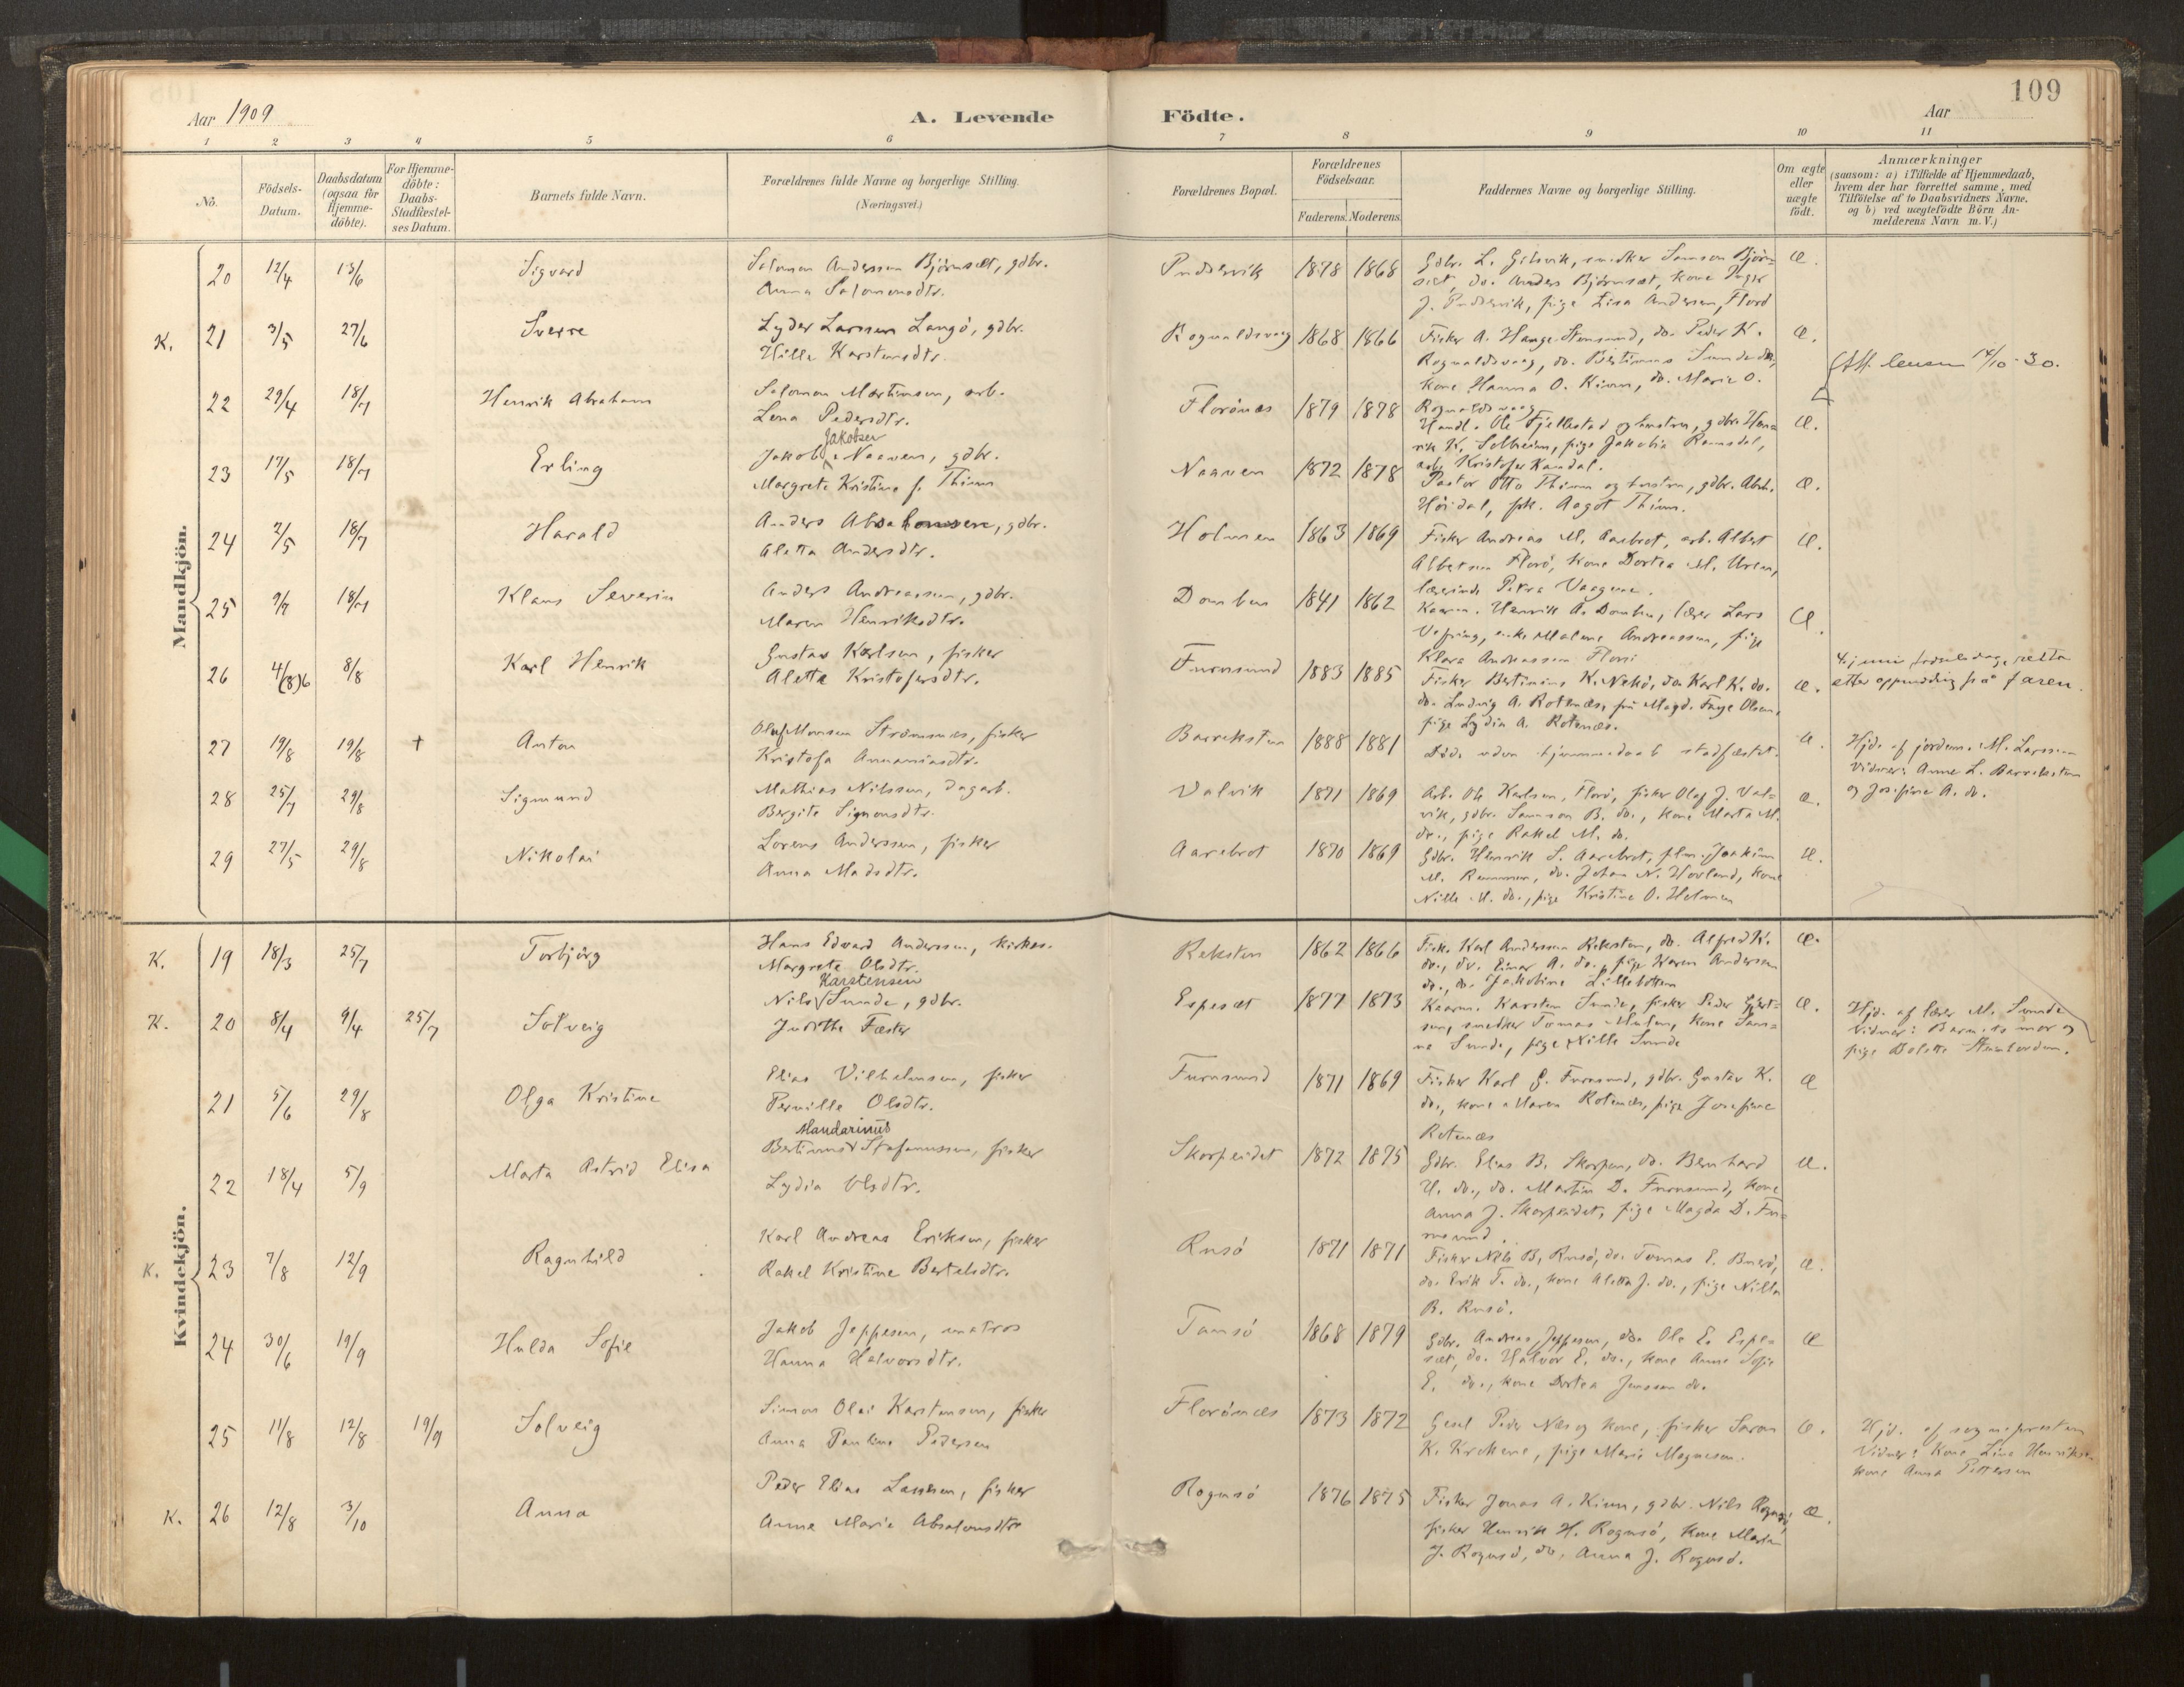 109
Aar 1909
A. Levende
Födte.
Aar
1 2 3 4 5 6 7 8 9 10 11
No.
Födsels-
Datum.
Daabsdatum
(ogsaa for
Hjemme-
döbte).
For Hjemme-
döbte:
Daabs-
Stadfæstel-
ses Datum.
Barnets fulde Navn.
Forældrenes fulde Navne og borgerlige Stilling.
(Næringsvei.)
Forældrenes Bopæl.
Forældrenes
Födselsaar.
Faderens. Moderens.
Faddernes Navne og borgerlige Stilling.
Om ægte
eller
uægte
födt.
Anmærkninger
(saasom: a) i Tilfælde af Hjemmedaab,
hvem der har forrettet samme, med
Tilföielse af to Daabsvidners Navne.
og b) ved uægtefödte Börn An-
melderens Navn m. V.)
Mandkjön.
20 12/4 13/6 Sigvard
Salomon Anderssen Björnsæt, gdbr.
Anna Salomonsdtr.
1878 1868
Gdbr. L. Gilsvik, snedker Samson Björn-
sæt, do. Anders Björnsæt, kone Inger
pige Lisa Andersen, Florö
Æ.
K. 21 3/5 27/6 Sverre
Lyder Larssen Langö, gdbr.
Hilla Karstensdtr.
Rognaldsvaag 1868 1866
Fisker A. Hauge Stensund, do. Peder K.
Rognaldsvaag, do. Bertinus Sunde do.,
kone Hanna O. Kinn, do. Marie O.
Rognaldsvaag
Æ.
22 29/4 18/7 Henrik Abraham
Salomon Martinsen, arb.
Lena Pedersdtr.
Florönæs 1879 1878
Handl. Ole Fjellestad og hustru, gdbr. Hen-
rik K. Solheim, pige Jakobia Ramsdal,
arb. Kristofer Kandal.
Æ.
Att. 14/10-30.
23 17/5 18/7 Erling
Jakobsen
Jakob Naaven, gdbr.
Margrete Kristine f. Thinn
Naaven 1872 1878
Pastor Otto Thinn og hustru, gdbr. Abrh.
Höidal, frk. Aagot Thinn.
Æ.
24 2/5 18/7 Harald
Anders Absalonsen, gdbr.
Aletta Andersdtr.
Holmen 1863 1869
Fisker Andreas M. Aarebrot, arb. Albert
Albertsen Florö, kone Dortea M. Uren,
lærerinde Petra Vaagene.
Æ.
25 18/7 Klaus Severin
Anders Andreassen, gdbr.
Maren Henriksdtr.
Domben 1841 1862
Kaarm. Henrik A. Domben, lærer Lars
Vefring, enke Malene Andreassen, pige
Klara Andreassen Florö
Æ.
26 4/(8)6 8/8 Karl Henrik
Gustav Karlsen, fisker
Aletta Kristofersdtr.
Furusund 1883 1885
Fisker Bertinius K. Nekö, do. Karl K. do.
do. Ludvig A. Rotenæs, fru Magd. Frye Olsen,
pige Lydia A. Rotenæs.
Æ.
4. juni födselsdag, retta
etter oppmoding frå faren.
27 19/8 19/8 † Anton
Olaf Monsen Strömsnæs, fisker
Kristofa Annaniasdtr.
Barreksten 1888 1881
Död uden hjemmedaab stadfæstet.
Æ.
Hjd. af jordem. M. Larssen
Vidner: Anne L. Barreksten
og Josefine A. do.
28 25/7 29/8 Sigmund
Mathias Nilssen, dagarb.
Bergite Sigmondsdtr.
Valvik 1871 1869
Arb. Ole Karlsen, Florö, fisker Olaf J. Val-
vik, gdbr. Samson B. do., kone Marta M.
do., pige Rakel M. do.
Æ.
29 27/5 29/8 Nikolai
Lorens Anderssen, fisker
Anna Madsdtr.
Aarebrot 1870 1869
Gdbr. Henrik S. Aarebrot, flm. Joakim
M. do. Johan N. Hovland, kone
Nille M. do., pige Kristine O. Holmen
Æ.
Kvindekjön.
K. 19 18/3 25/7 Torbjörg
Hans Edvard Anderssen, kirkes.
Margrete Olsdtr.
Reksten 1862 1866
Fisk. Karl Anderssen Reksten, do. Alfred K.
do., do. Einar A. do., pige Karen Andersen
do., do. Jakobine Lillebotten
Æ.
K. 20 8/4 9/4 25/7 Solveig
Karstensen
Nils Sunde, gdbr.
Judithe Fæster
Espesæt 1877 1873
Kaarm. Karsten Sunde, fisker Peder Gjert-
sen, snedker Tomas Hulen, kone San-
na Sunde, pige Nille Sunde
Æ.
Hjd. af lærer M. Sunde
Vidner: Barnets mor og
pige Bolette
21 5/6 29/8 Olga Kristine
Elias Vilhelmsen, fisker
Pernille Olsdtr.
Furusund 1871 1869
Fisker Karl G. Furusund, gdbr. Gustav K.
do., kone Maren Rotenæs, pige Josefine
Rotenæs
Æ
22 18/4 5/9 Marta Astrid Elisa
Mandarinus
Bertinus Stefanussen, fisker
Lydia Olsdtr.
Skorpeidet 1872 1875
Gdbr. Elias B. Skorpen, do. Bernhard
H. do., do. Martin D. Furusund, kone
Anna J. Skorpeidet, pige Magda D. Fu-
rusund.
Æ.
K. 23 7/8 12/9 Ragnhild
Karl Andreas Eriksen, fisker
Rakel Kristine Bertelsdtr.
Rusö 1871 1871
Fisker Nils B. Rusö, do. Tomas E. Buerö,
do. Erik T. do., kone Aletta J. do., pige Nilla
B. Rusö.
Æ.
24 30/6 19/9 Hulda Sofie
Jakob Jeppesen, matros
Hanna Halvorsdtr.
Tansö 1868 1879
Gdbr. Andreas Jeppesen, do. Ole E. Espe-
sæt, do. Halvor E. do., kone Anne Sofie
E. do., kone Dortea Jenssen do.
Æ
25 11/8 12/8 19/9 Solveig
Simon Olai Karstensen, fisker
Anna Pauline Pedersen
Florönæs 1873 1872
Gesel Peder Næs og kone, fisker Saron
K. Krokene, pige Marie Magnesen.
Æ.
Hjd. af sognepresten
Vidner: Kone Lina Henriksen
kone Anna Pettersen
K. 26 12/8 3/10 Anna
Peder Elias Lassesen, fisker
Anne Marie Absalonsdtr
Rognsö 1876 1875
Fisker Jonas A. Kinn, gdbr. Nils Rognsö,
fisker Henrik H. Rognsö, kone Marta
J. Rognsö, do. Anna J. Rognsö.
Æ.